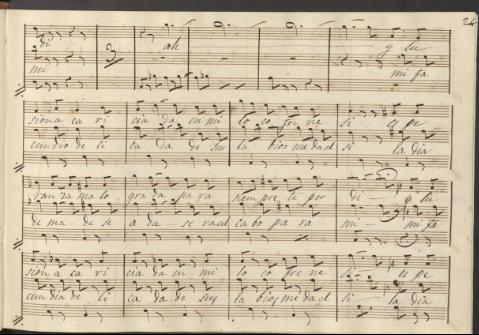 24
di ah y tu
mi mi fa
sion a ca ri cia da en mi lo co fre ne si es pe
cun dio de li ca da de sus la bios me da el si la dia
ran za ma lo gra da pa ra siem pre te per di y tu
de ma de se a da se ra al ca bo pa ra mi mi fa
sion a ca ri cia da en mi lo co fre ne si es pe
cun dia de li ca da de sus la bios me da el si la dia